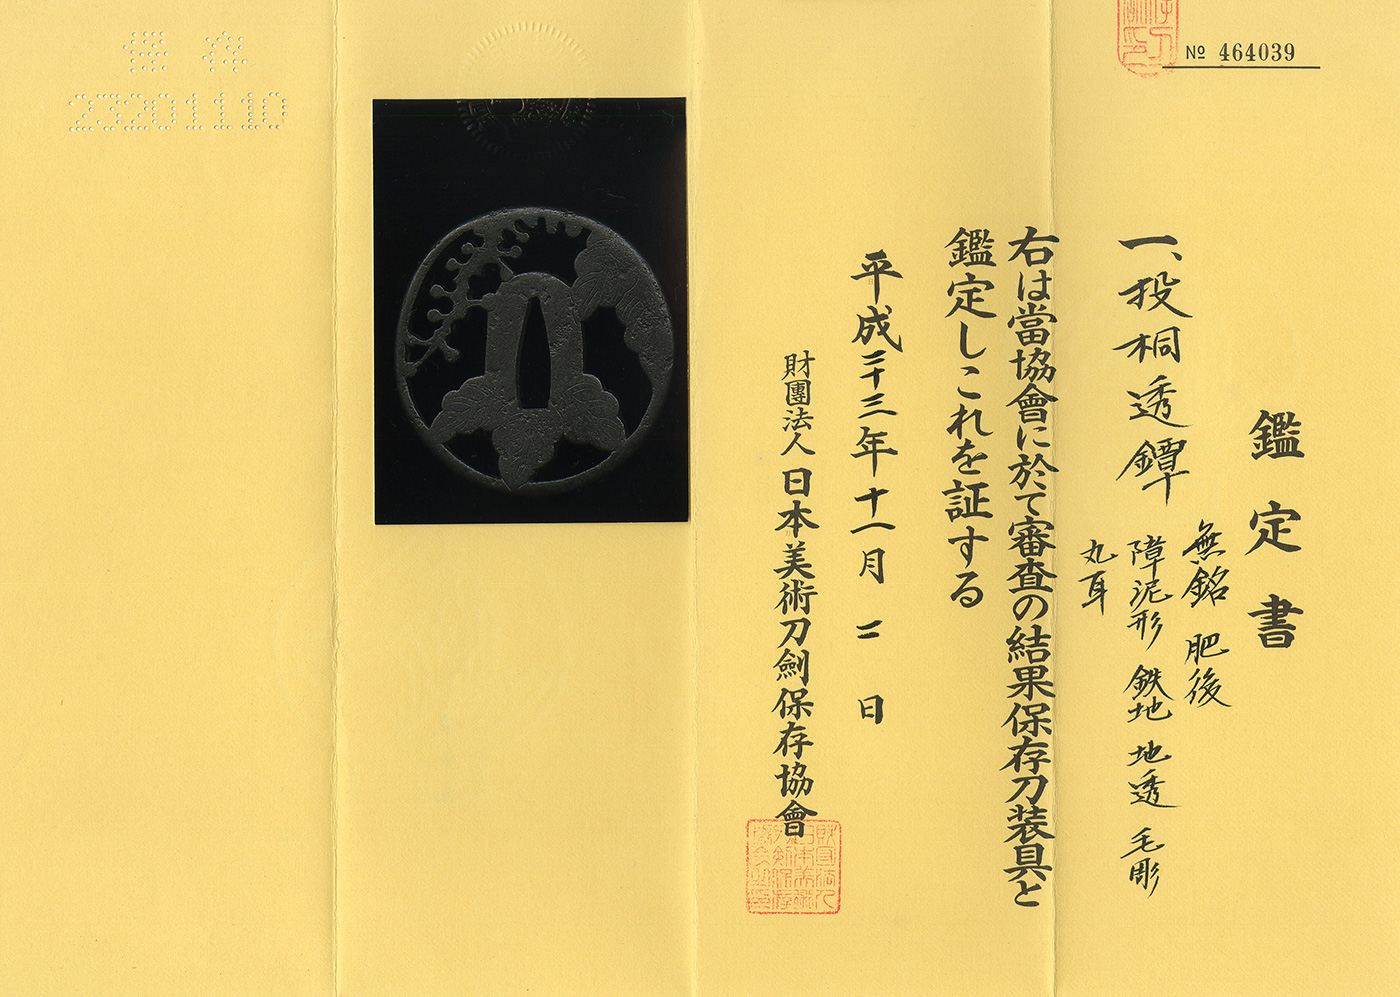 № 464039
鑑定書
一、投桐透鐔
無銘 肥後
障泥形 鉄地 地透 毛彫
丸耳
右は當協會に於て審査の結果保存刀装具と
鑑定しこれを証する
平成二十三年十一月二日
財團法人 日本美術刀劍保存協會
保存
23201110